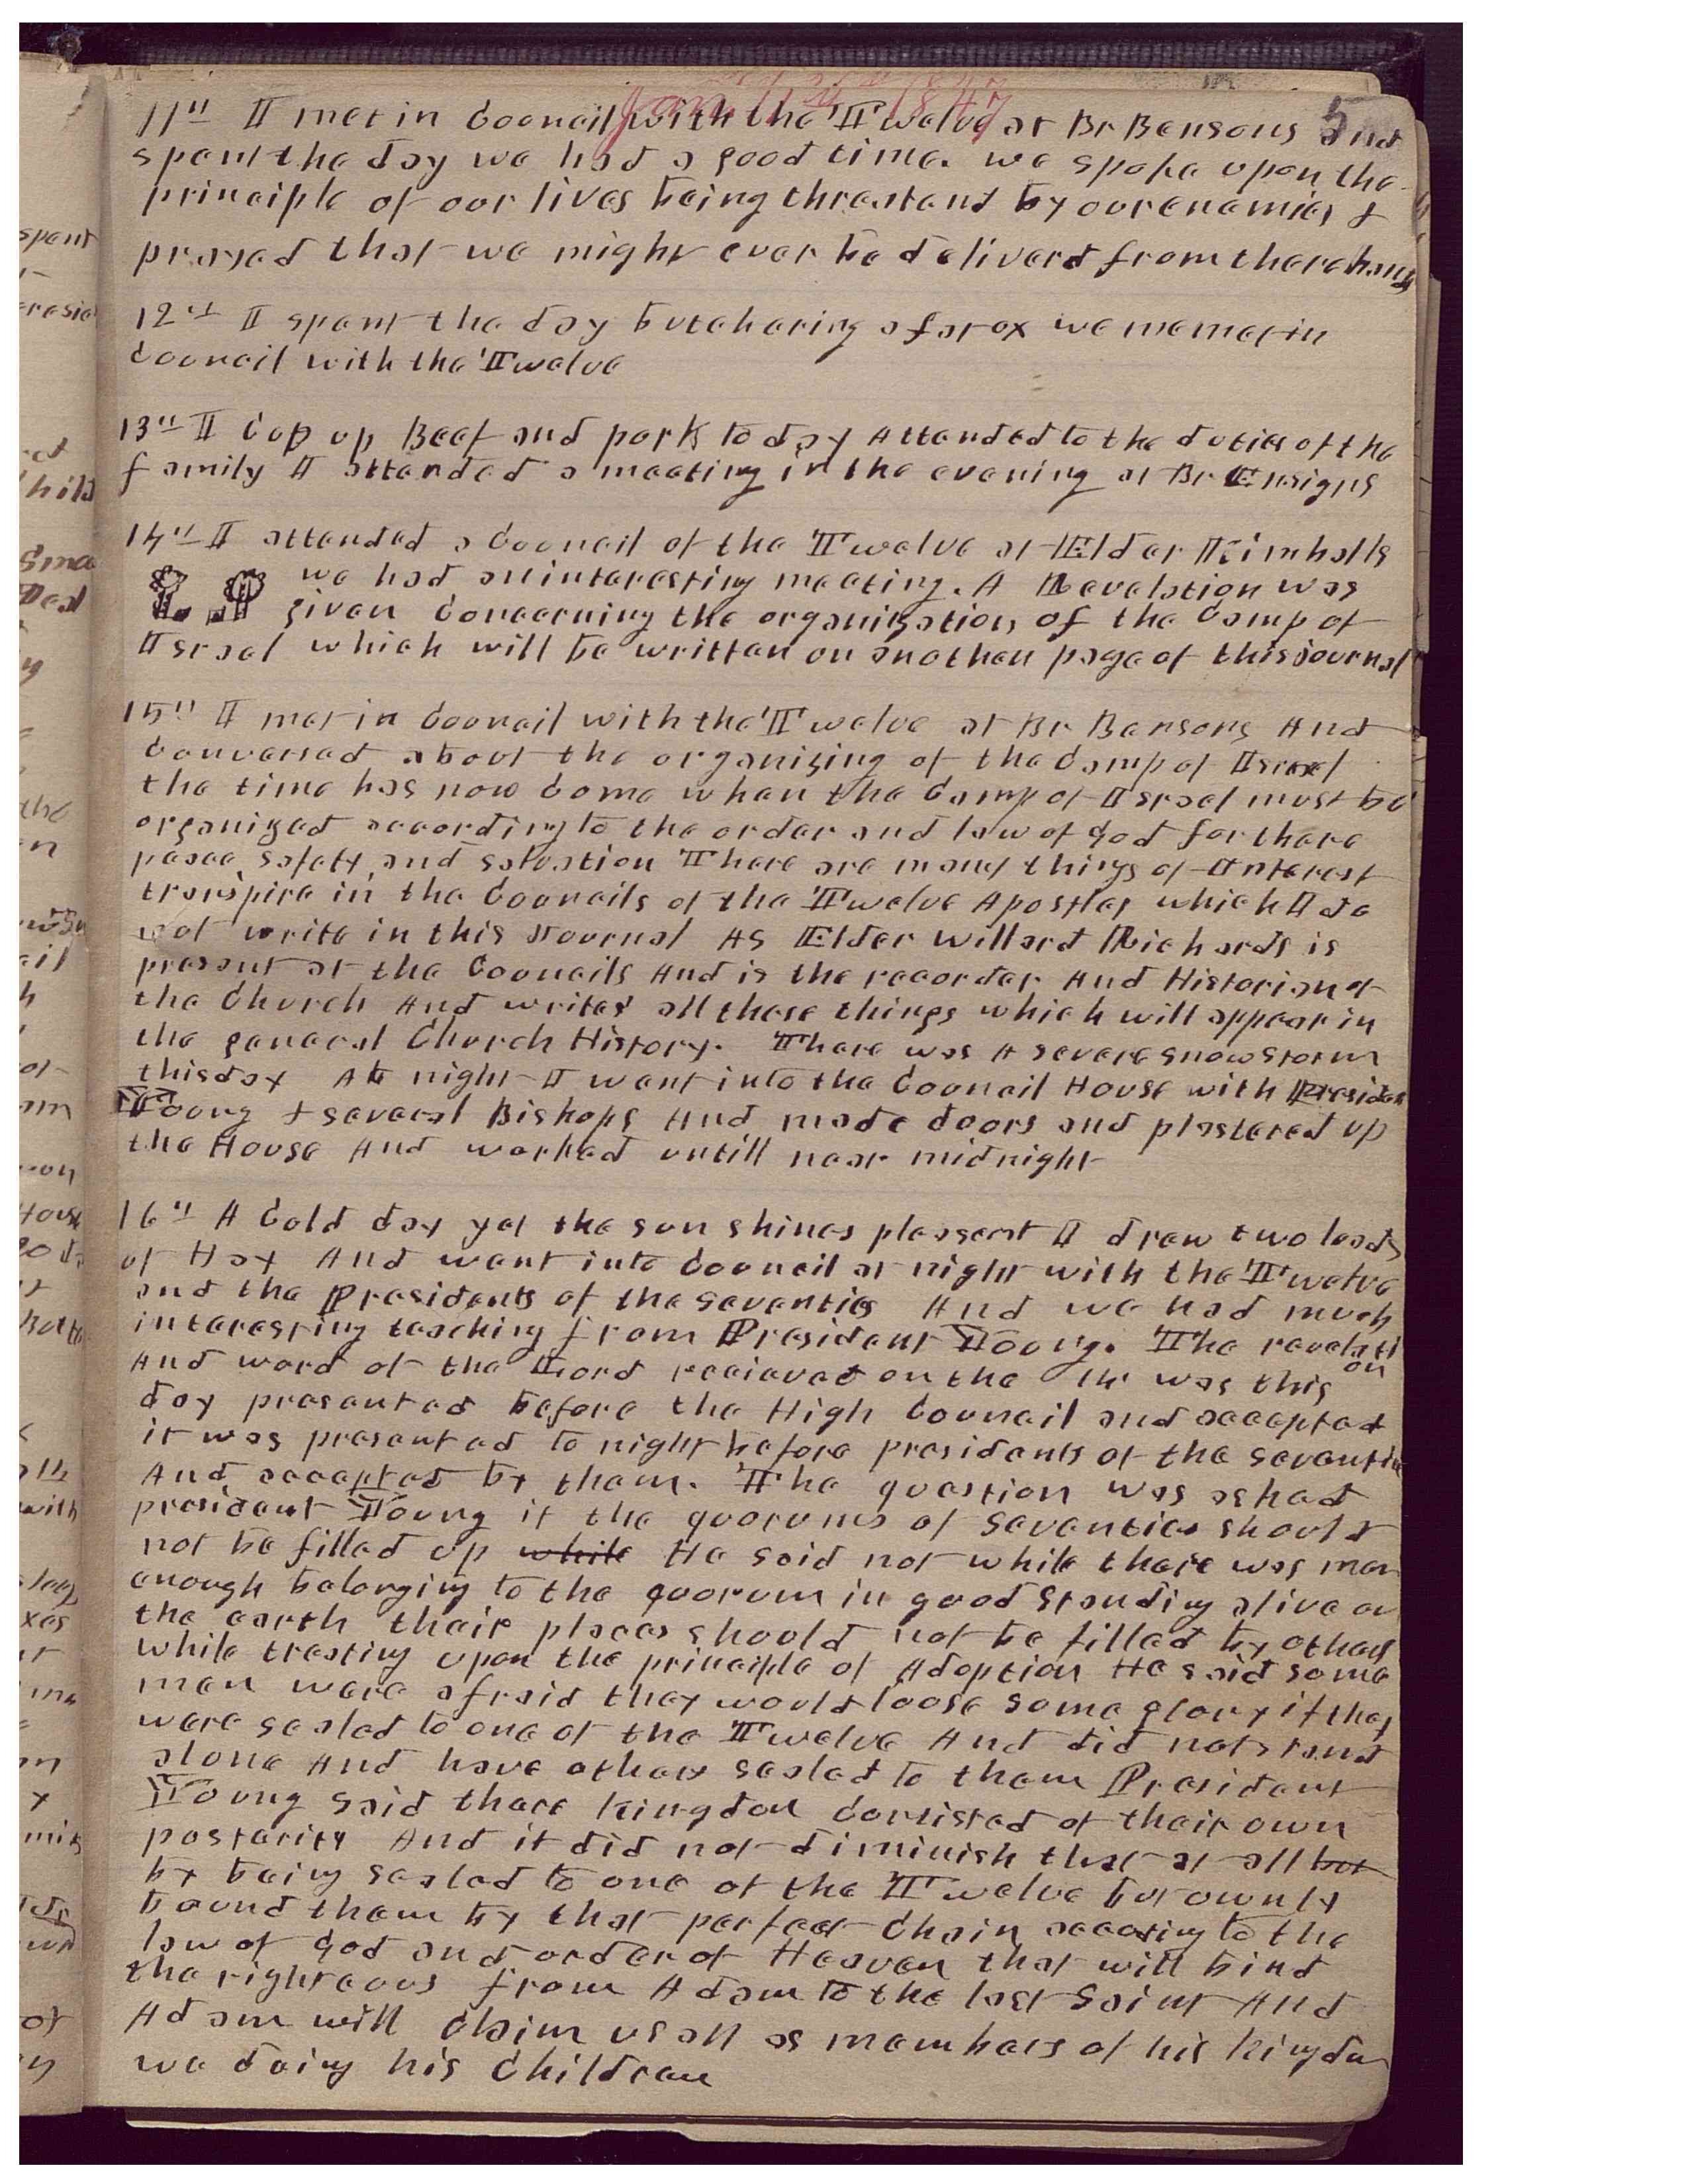 Jan 11th 1847
5
11th I met in Council with the Twelve at Br Bensons and
spent the day we had a good time. we spoke upon the
principle of our lives being threatend by our enemies &
prayed that we might ever be deliverd from there hands
12th I spent the day butchering a fat ox we me met in
Council with the Twelve
13th I Cup up Beef and pork to day Attended to the duties of the
family I attended a meeting in the evening at Br Ensigns
14th I attended a Council of the Twelve at Elder Kimballs
we had an interesting meeting. A Revelation was
given Concerning the organization of the Camp of
Israel which will be written on anothen page of this journal
15th I met in Council with the Twelve at Br Bensons And
Conversed about the organizing of the Camp of Israel
the time has now Come when the Camp of Israel must be
organized according to the order and law of God for there
peace, safety, and salvation There are many things of Interest
transpire in the Councils of the Twelve Apostles which I do
not write in this Journal As Elder Willard Richards is
present at the Councils And is the recorder And Historian of
the Church And writes all these things which will appear in
the general Church History. There was A severe snow storm
this day At night I went into the Council House with Presiden
Young & several Bishops And made doors and plastered up
the House And worked untill near midnight
16th A Cold day yet the sun shines pleasent I drew two loads
of Hay And went into Council at night with the Twelve
and the Presidents of the seventies And we had much
interesting teaching from President Young. The revelati
on
And word of the Lord recieved on the 14 was this
day presented before the High Council and accepted
it was presented to night before presidents of the seventies
And accepted by them. The question was asked
president Young if the quorums of Seventies should
not be filled up while He said not while there was men
enough belonging to the quorum in good Standing alive on
the earth their places should not be filled by others
while treating upon the principle of Adoption He said some
men were afraid they would loose some glory if they
were sealed to one of the Twelve And did not stand
alone And have others sealed to them President
Young said there kingdom Consisted of their own
posterity And it did not diminish that at all but
by being sealed to one of the Twelve but ownly
bound them by that perfect Chain according to the
law of God and order of Heaven that will bind
the righteous from Adam to the last Saint And
Adam will Claim us all as members of his kingdom
we being his Children